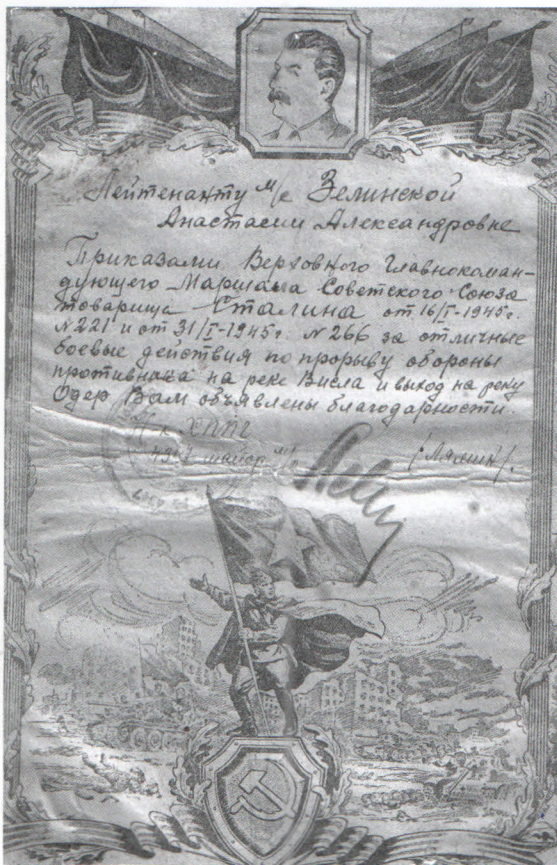 Лейтенанту м/с Зелинской
Анастасии Александровне
Приказами Верховного Главнокоман-
дующего Маршала Советского Союза
товарища Сталина от 16/I-1945г.
№221 и от 31/I-1945г. №266 за отличные
боевые действия по прорыву обороны
противника на реке Висла и выход на реку
Одер Вам объявлены благодарности.
Н-к ХППГ
майор м/с